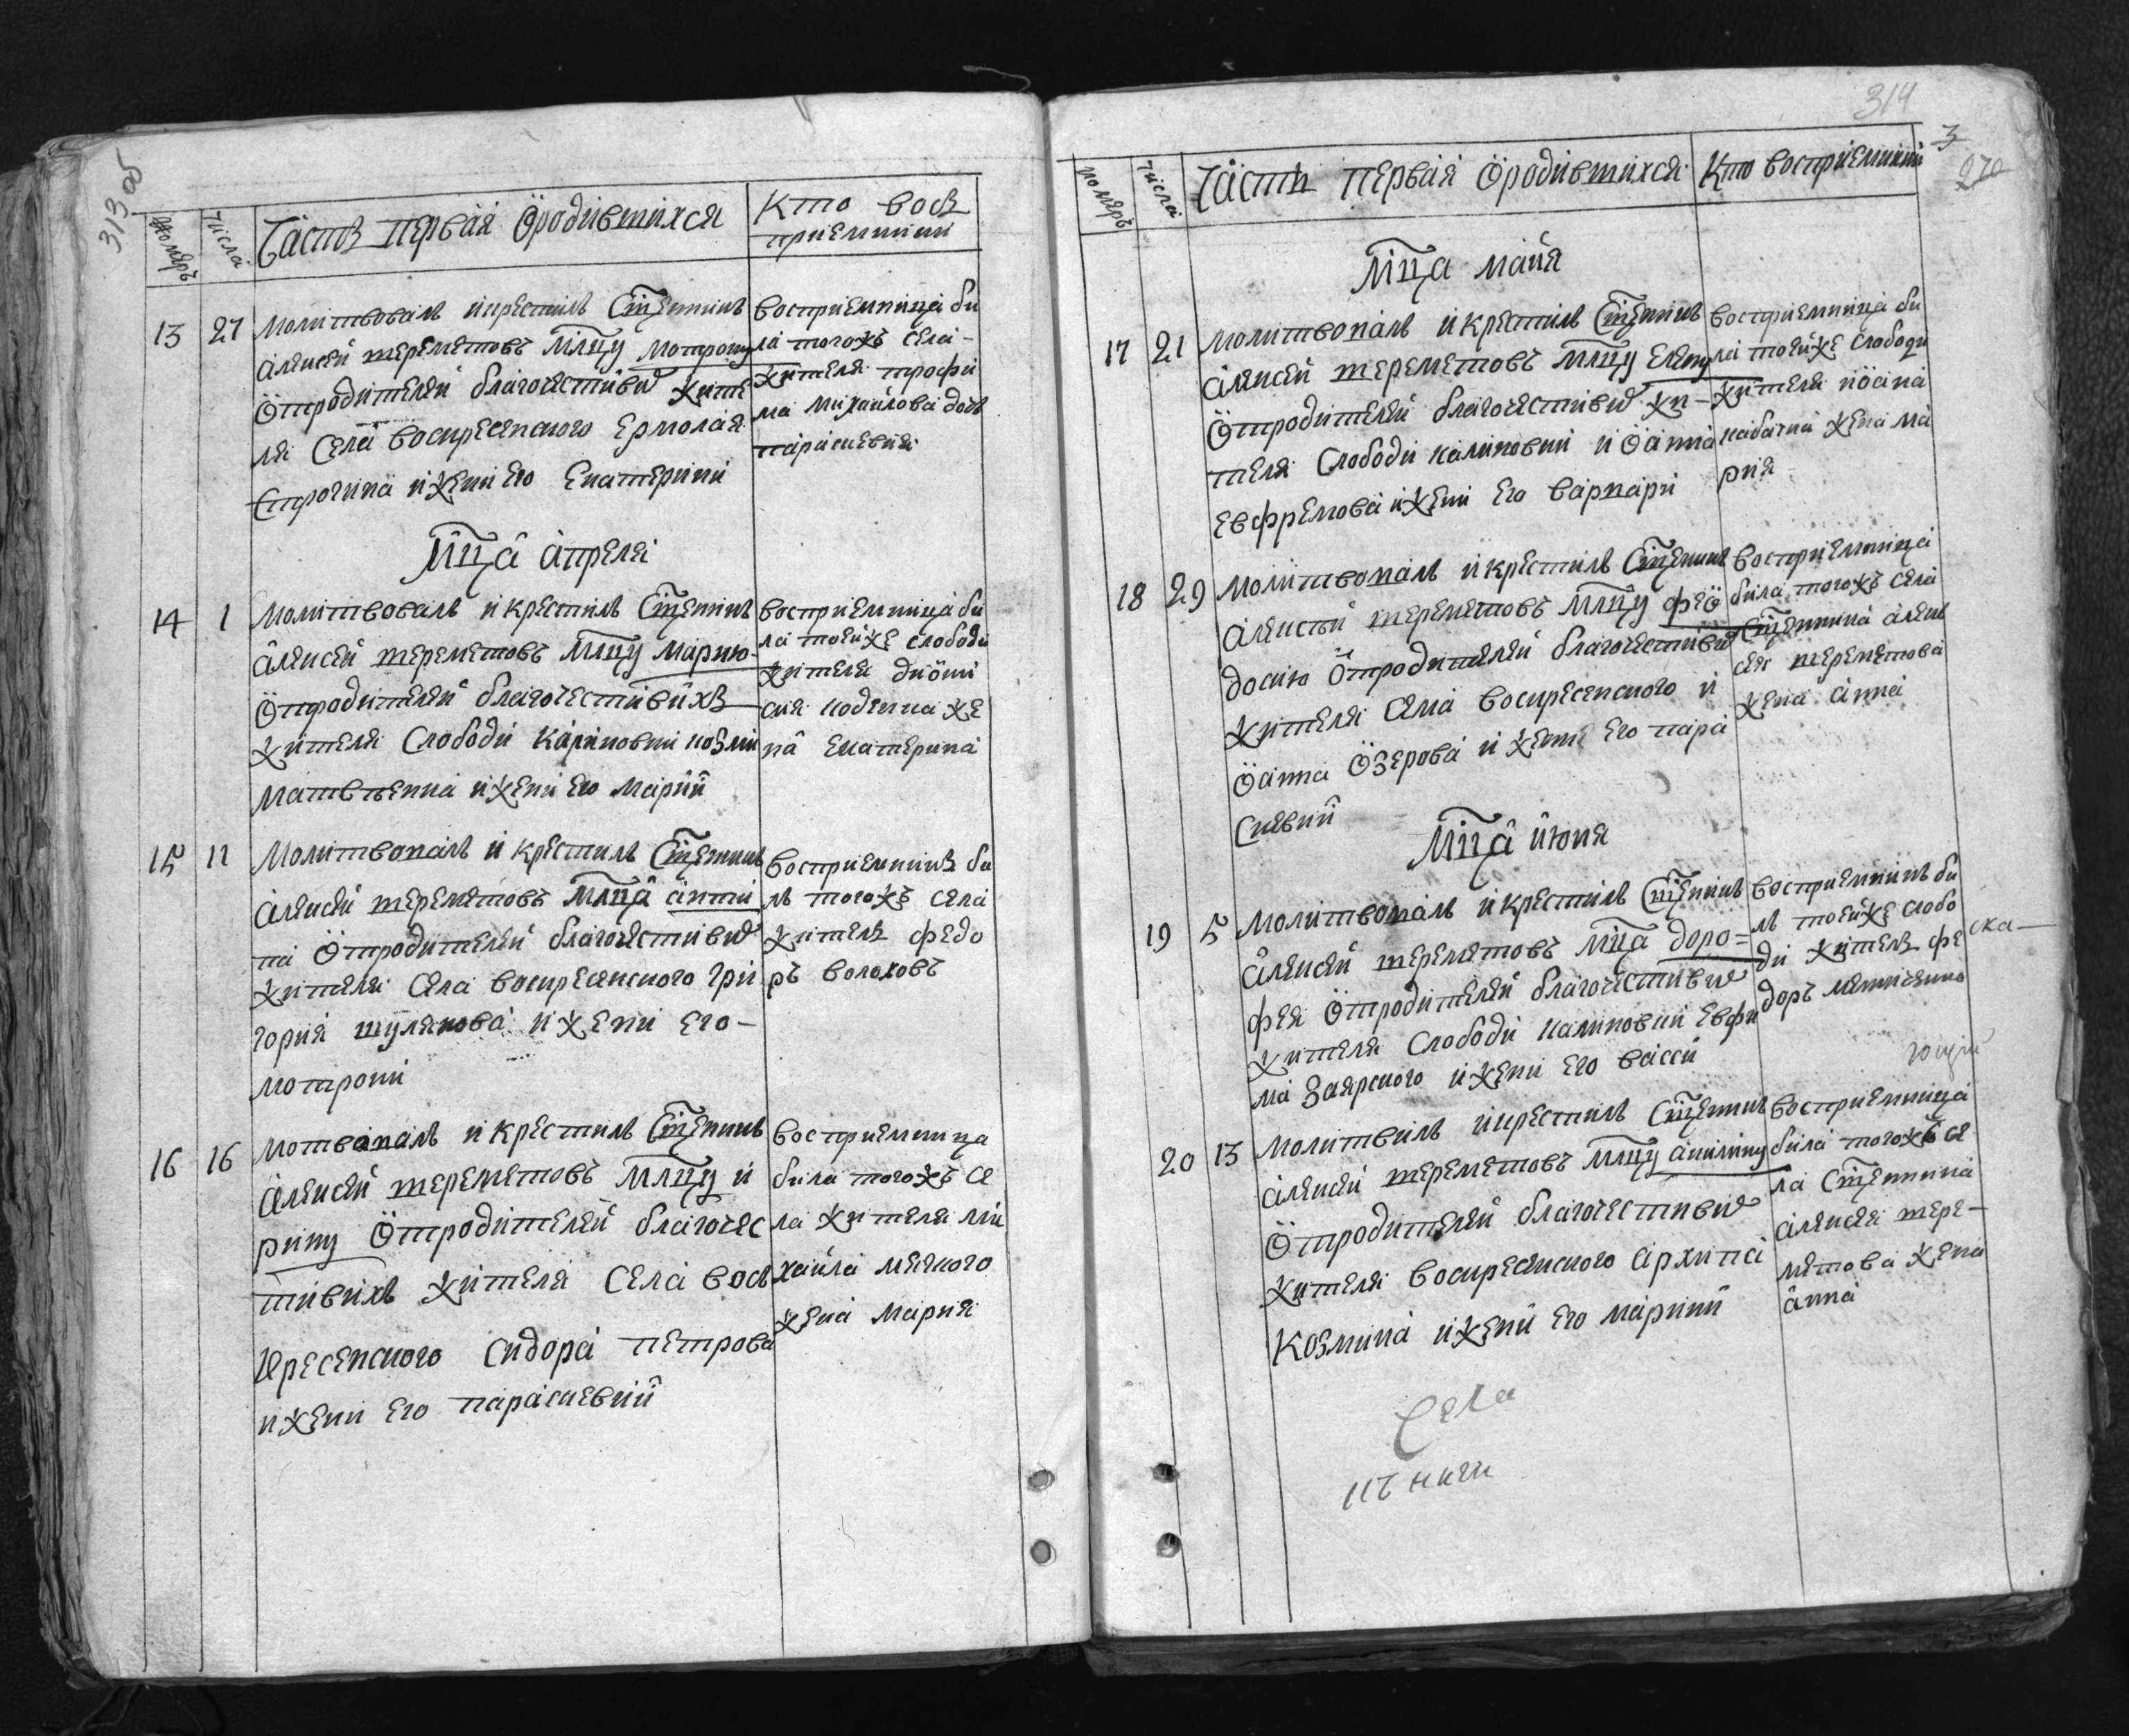 313 об
номеръ
числа
Часть первая ѡродившихся
Кто вос
приемники
13
27
Молитвовалъ икрестилъ Сщенникъ
Алексей шереметовъ Млцу Мотрону
ѿродителей благочестивых жите
ля Села воскресенского Ермолая
Строчина ижени Его Екатерини
Восприемница би
ла тогожъ села
жителя трофи
ма михайлова дочь
параскевия
Мца Апреля
14
1
Молитвовалъ икрестилъ Сщенникъ
Алексей шереметовъ Млцу Марию
ѿродителей благочестивихъ
жителя Слободи Калиновки козми
Матвѣенка ижени Его Марии
Восприемница би
ла тойже слободи
жителя диѡни
сия коденка же
на Екатерина
15
11
Молитвовалъ и крестилъ Сщенникъ
Алексей шереметовъ Млца анти
па ѿродителей благочестивых
жителя Села воскресенского Гри
гория шулякова ижени Его
мотрони
Восприемникъ би
лъ тогожъ села
житель федо
ръ волоховъ
16
16
Мотвовалъ и крестилъ Сщенникъ
Алексей шереметовъ Млцу и
рину ѿродителей благочес
тивихъ жителя Села вось
кресенского Сидора петрова
ижени Его параскевии
Восприемница
била тогожъ се
ла жителя ми
хайла мячкого
жена Мария
314
3
270
номеръ
числа
Часть первая ѡродившихся
Кто восприемники
Мца майя
17
21
Молитвовалъ и крестилъ Сщенникъ
Алексей шереметовъ млцу Елену
ѿродителей благочестивых жи-
теля Слободи калиновки иѡанна
Евфремова ижени Его варвари
Восприемница би
ла тойже слободи
жителя иѡана
кабачна жена ма
рия
18
29
Молитвовалъ икрестилъ Сщенникъ
Алексѣй шереметовъ млцу фeѡ
досию ѿродителей благочестивых
жителя села воскресенского и
ѡанна ѡзерова и жени его пара
скевии
Восприемница
била тогожъ села
Сщенника алек
сея шереметова
жена анна
Мца июня
19
5
Молитвовалъ икрестилъ Сщенникъ
Алексей шереметовъ мца доро=
фея ѿродителей благочестивых
жителя Слободи калиновки Евфи
ма Заярского ижени Его васси
Восприемникъ би
лъ тойже слобо
ди житель фе
доръ
ска
20
13
Молитвилъ икрестилъ Сщенникъ
Алексей шереметовъ млцу акилину
ѿродителей благочестивых
жителя воскресенского Архипа
Козмина ижени Его марини
Восприемница
била тогожъ се
ла Сщенника
Алексея шере-
метова жена
анна
Села